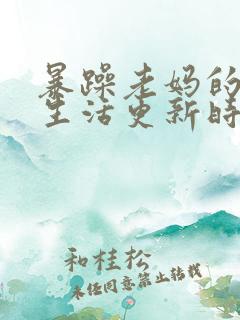 暴躁老妈的
生活更新时
和桂松
未经同意禁止转载